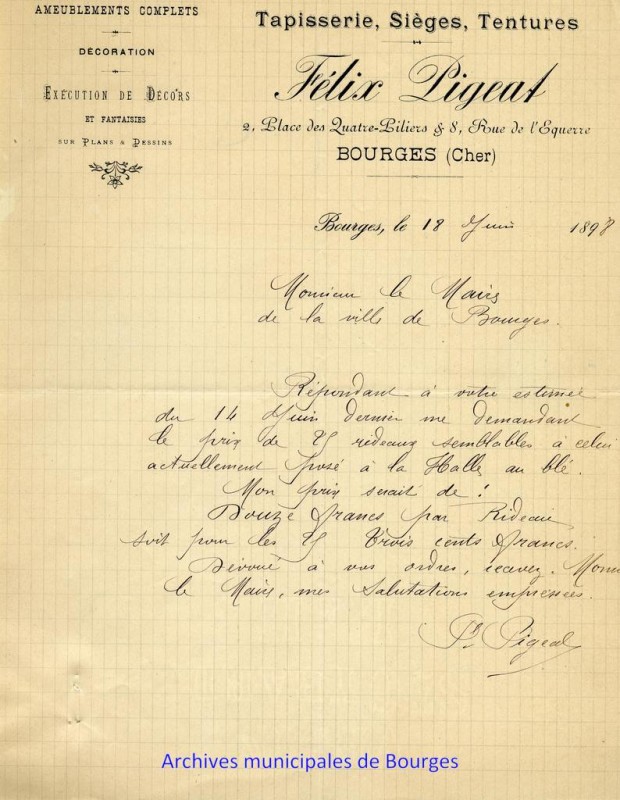 AMEUBLEMENTS COMPLETS
DÉCORATION
EXÉCUTION DE DÉCORS
ET FANTAISIES
SUR PLANS & DESSINS
Tapisserie, Sièges, Tentures
Félix Pigeat
2, Place des Quatre-Piliers & 8, Rue de l'Equerre
BOURGES (Cher)
Bourges, le 18 Juin 1898
Monsieur le Maire
de la ville de Bourges.
Répondant à votre estimée
du 14 Juin dernier me demandant
le prix de 25 rideaux semblables à celui
actuellement posé à la Halle au blé.
Mon prix serait de :
Douze francs par Rideau,
soit pour les 25 Trois cents francs.
Dévoué à vos ordres, recevez, Monsi
le Maire, mes Salutations empressées.
Pigeat
Archives municipales de Bourges